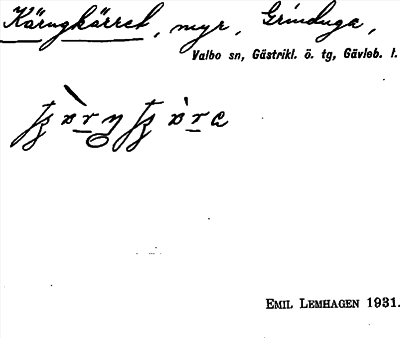 Kärngkärret, myr, Grinduga,
Valbo sn, Gästrikl. ö. tg, Gävleb. l.
EMIL LEMHAGEN 1931.